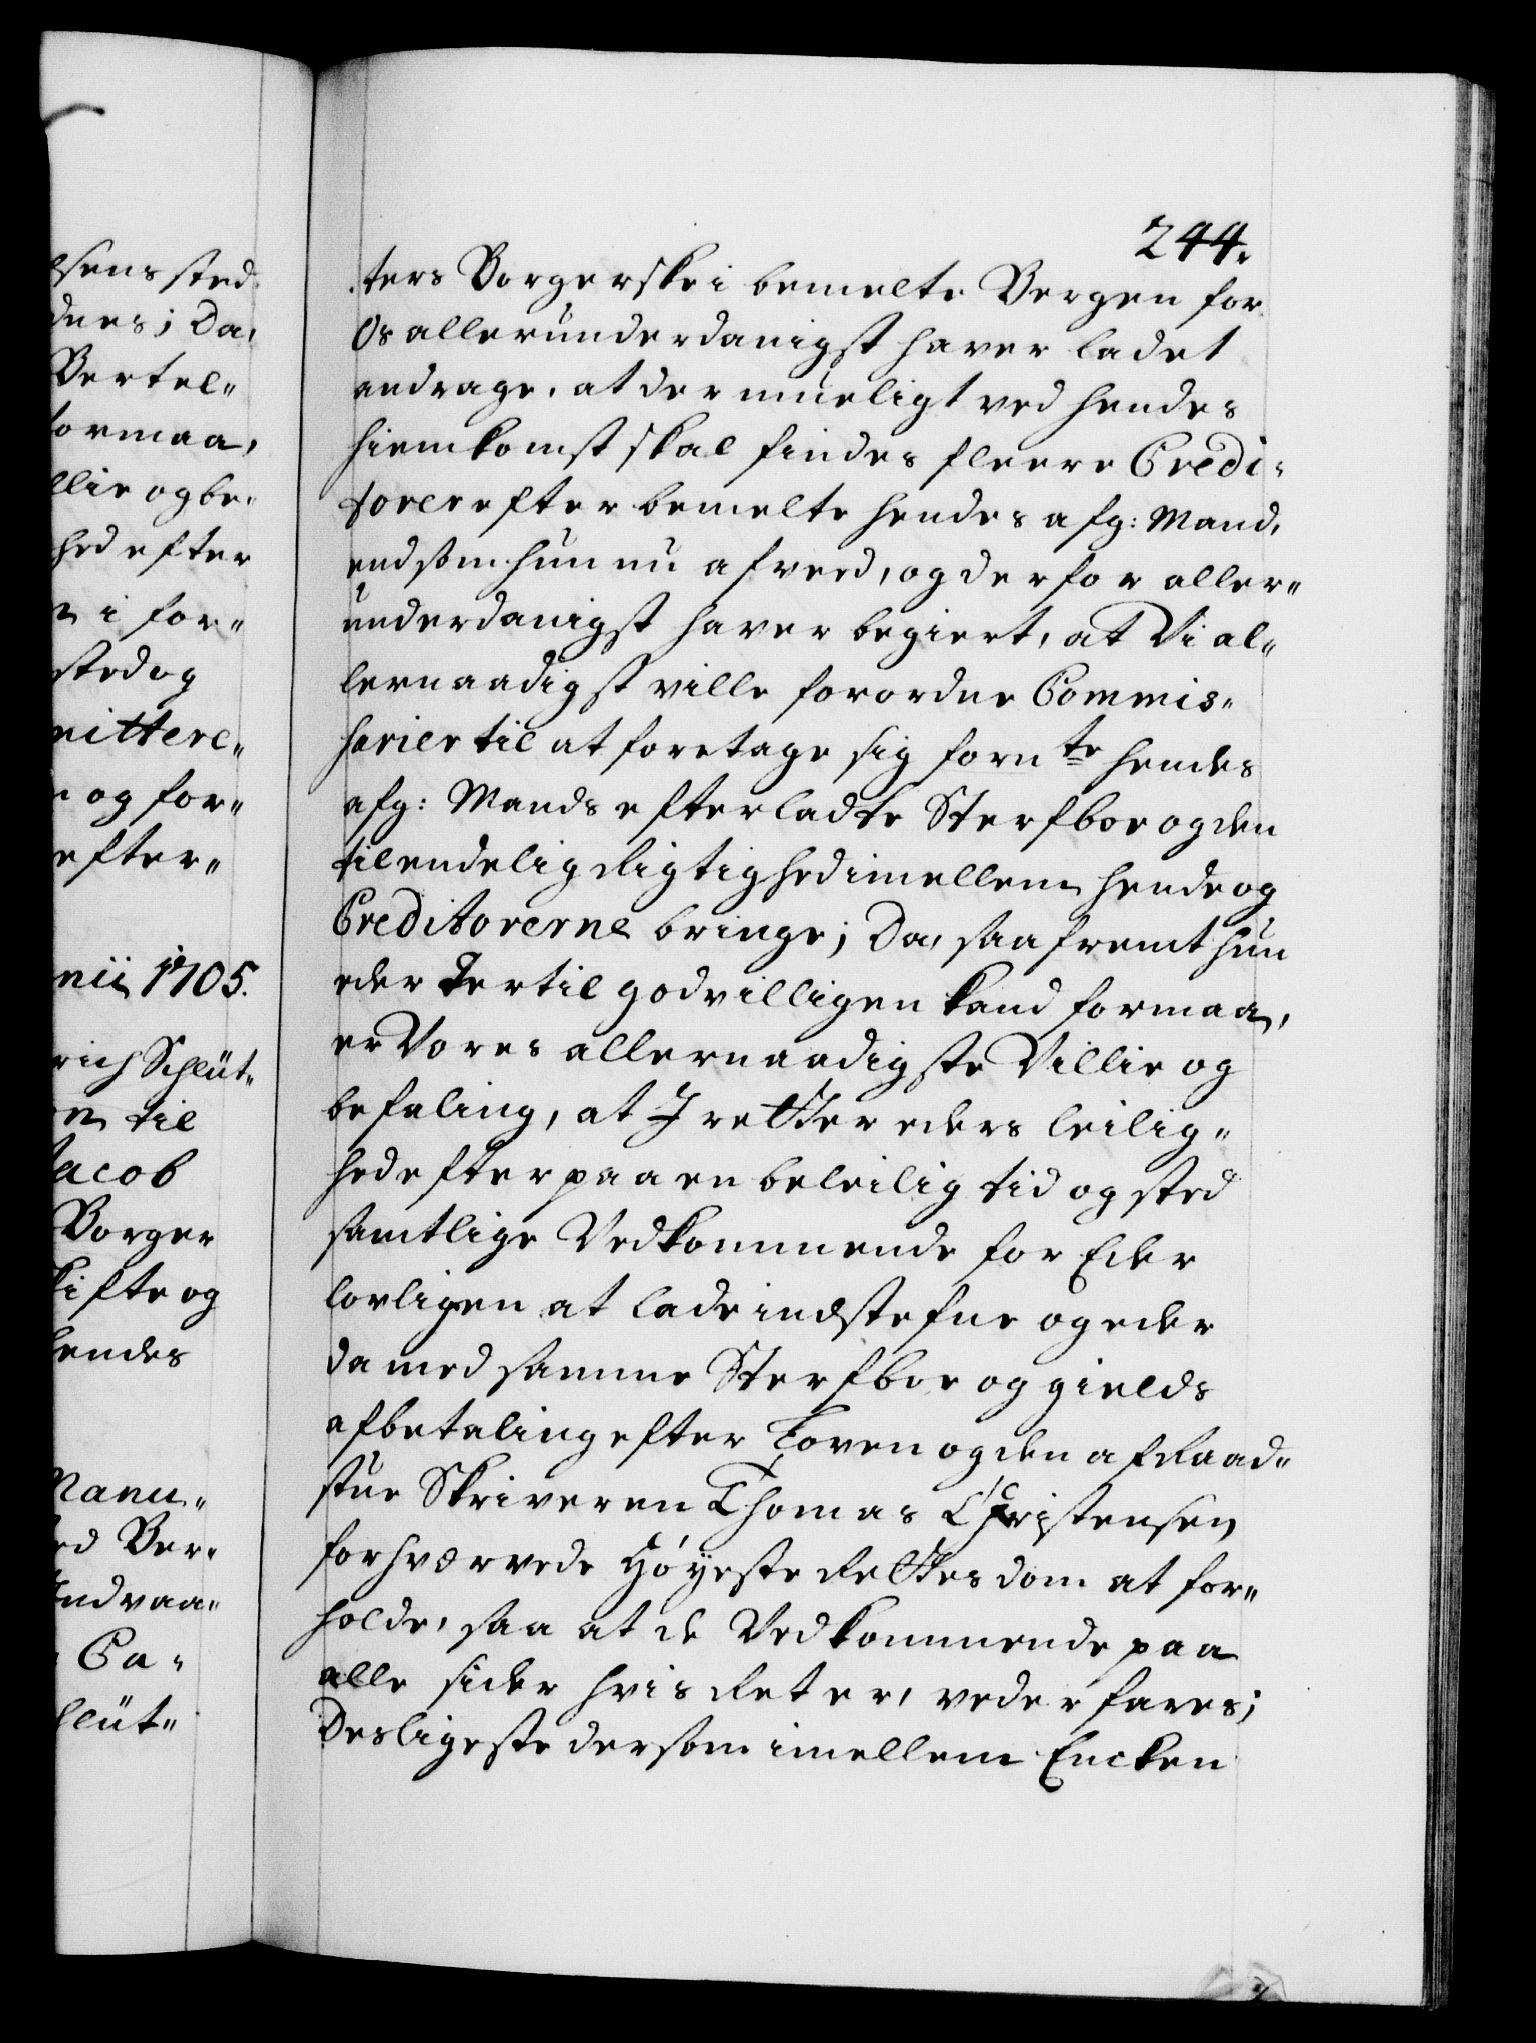 244.
ters Borgerske i bemelte Bergen for
Os allerunderdanigst haver ladet
andrage, at der mueligt ved hendes
hiemkomst skal findes fleere Credi-
torer efter bemelte hendes afg: Mand,
end som hun nu af veed, og derfor aller„
underdanigst haver begiert, at Vi al„
lernaadigst ville forordne Commis„
sarier til at foretage sig fornte hendes
afg: Mands efterladte Sterfboe og den
til endelig Rigtighed imellem hende og
Creditorerne bringe; Da, saafremt hun
eder dertil godvilligen kand formaa,
er Vores allernaadigste Villie og
befaling, at I retter eders leilig„
hed efter paa en beleilig tid og sted
samtlige Vedkommende for Eder
lovligen at lade indstefne og eder
da med samme Sterfboe og gields
afbetaling efter Loven og den af Raad„
stue Skriveren Thomas Christensen
forhværvede Høyeste Rettes dom at for„
holde, saa at de Vedkommende paa
alle sider hvis Ret er, vederfares;
Desligeste dersom imellem Encken
sens sted
dnes; Da,
Bertel„
formaa,
llie og be„
hed efter
n i for„
sted og
mittere„
og for„
efter„
nii 1705.
rich Schlüt„
n til
Jacob
Borger
kifte og
hendes
Manu„
ed Ber„
Indvaa„
Ca„
hlüt„